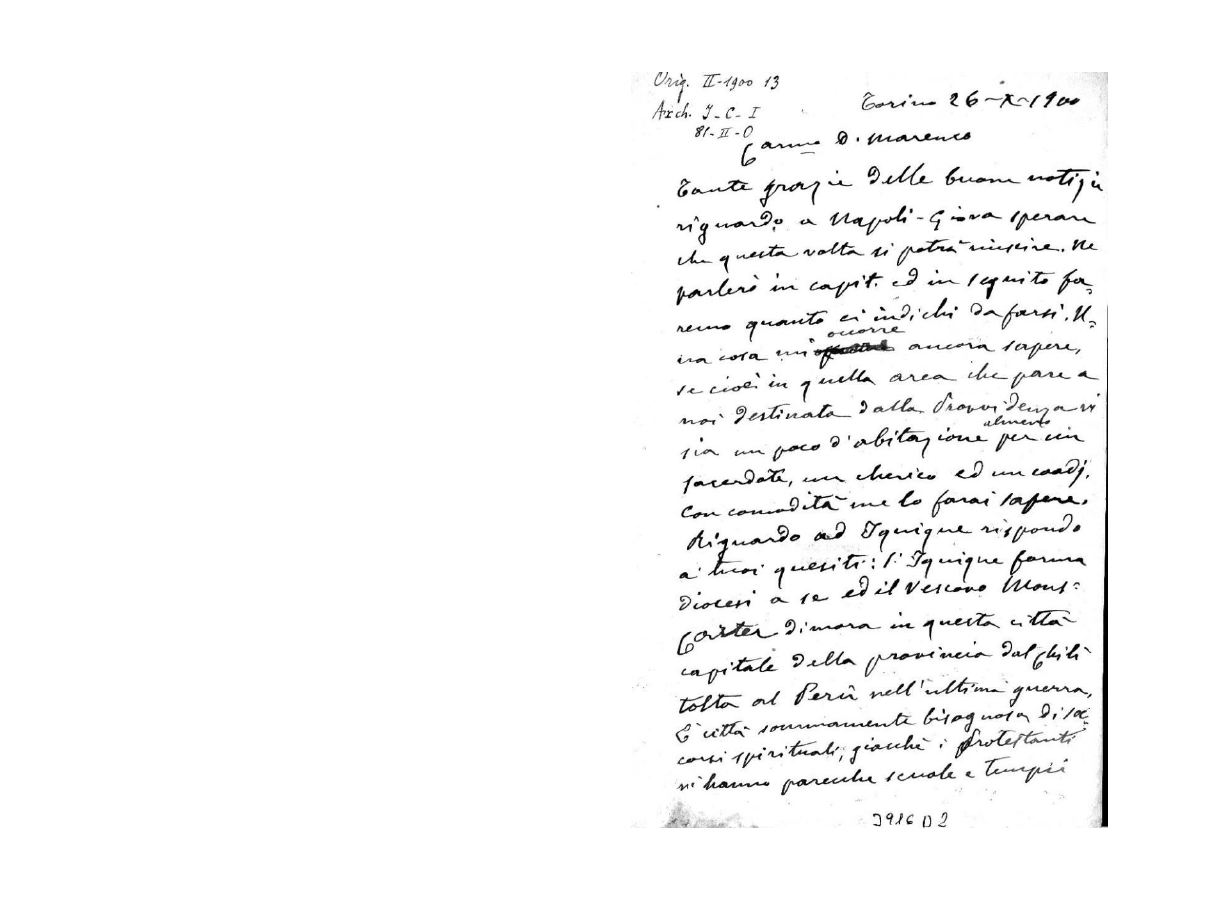 Orig. II-1900 13
Arch. I-C-I
81-II-O
Torino 26-X-1900
Carmo D. Marenco
Tante grazie delle buone notizie
riguardo a Napoli - Giova sperare
che questa volta si potrà riuscire. Ne
parlerò in capit. ed in seguito fa-
remo quanto ci indichi da farsi. U-
na cosa mi occorre ancora sapere,
se cioè in quella area che pare a
noi destinata dalla Provvidenza vi
sia un poco d'abitazione almeno per un
sacerdote, un cherico ed un coadj.
Con comodità me lo farai sapere.
Riguardo ad Iquique rispondo
a' tuoi quesiti: 1° Iquique forma
diocesi a se ed il Vescovo Mons:
dimora in questa città
capitale della provincia dal Chilì
tolta al Perù nell'ultima guerra,
È città sommamente bisognosa di soc-
corsi spirituali, giacchè i protestanti
vi hanno parecchie scuole e tempii
3916 D 2